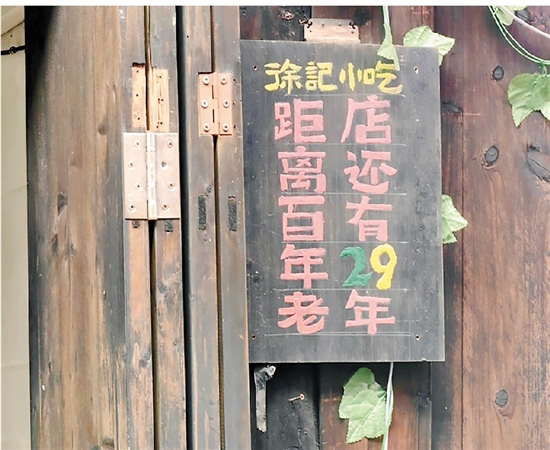 徐記小吃
距离百年老
店还有29年